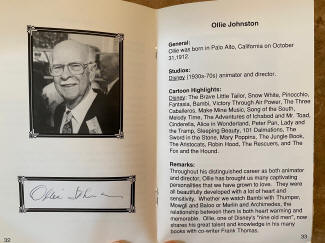 Ollie Johnston
32
Ollie Johnston
General:
Ollie was born in Palo Alto, California on October
31,1912.
Studios:
Disney (1930s-70s) animator and director.
Cartoon Highlights:
Disney: The Brave Little Tailor, Snow White, Pinocchio,
Fantasia, Bambi, Victory Through Air Power, The Three
Caballeros, Make Mine Music, Song of the South,
Melody Time, The Adventures of Ichabod and Mr. Toad,
Cinderella, Alice in Wonderland, Peter Pan, Lady and
the Tramp, Sleeping Beauty, 101 Dalmations, The
Sword in the Stone, Mary Poppins, The Jungle Book,
The Aristocats, Robin Hood, The Rescuers, and The
Fox and the Hound.
Remarks:
Throughout his distinguished career as both animator
and director, Ollie has brought us many captivating
personalities that we have grown to love. They were
all beautifully developed with a lot of heart and
sensitivity. Whether we watch Bambi with Thumper,
Mowgli and Baloo or Merlin and Archimedes, the
relationship between them is both heart warming and
memorable. Ollie, one of Disney's "nine old men", now
shares his great talent and knowledge in his many
books with co-writer Frank Thomas.
33